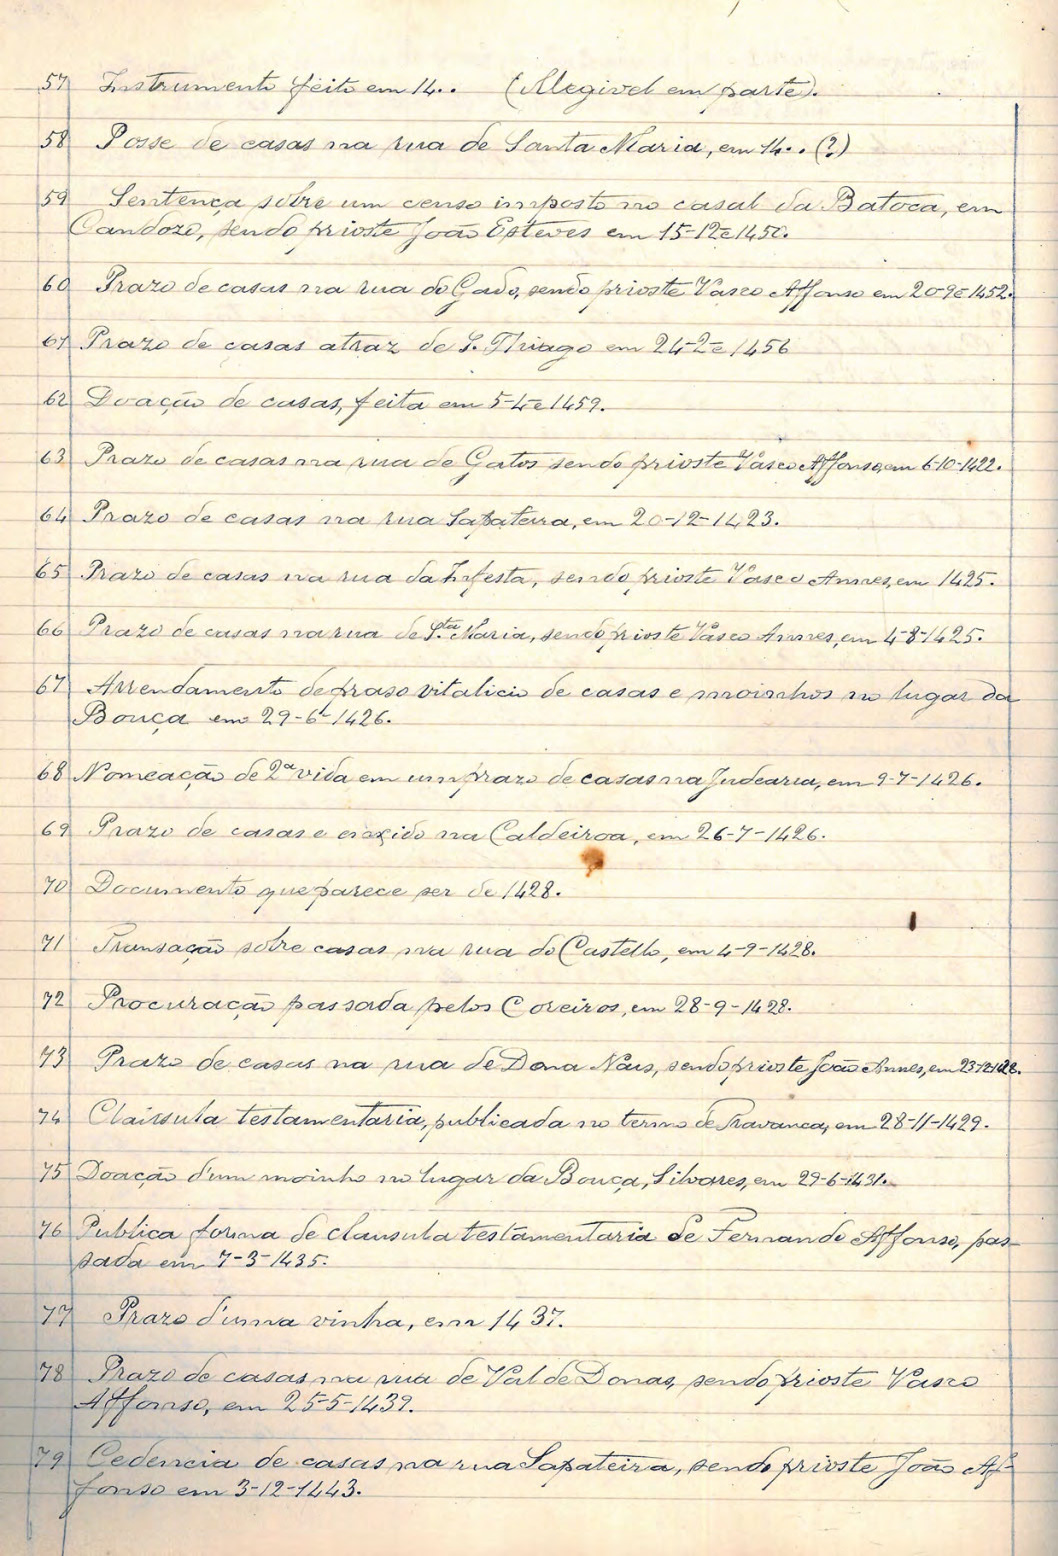 57 Instrumento feito em 14.. (Illegivel em parte).
58 Posse de casas na rua de Santa Maria, em 14.. (?)
59 Sentença sobre um censo imposto no casal da Batoca, em
Candozo, sendo prioste João Esteves em 15-12-1450.
60 Prazo de casas na rua do Gado, sendo prioste Vasco Affonso em 20-9-1452.
61 Prazo de casas atraz de S. Thiago em 24-2-1456
62 Doação de casas, feita em 5-4-1459.
63 Prazo de casas na rua de Gatos sendo prioste Vasco Affonso, em 6-10-1422.
64 Prazo de casas na rua Sapateira, em 20-12-1423.
65 Prazo de casas na rua da Infesta, sendo prioste Vasco Annes, em 1425.
66 Prazo de casas na rua de S.ta Maria, sendo prioste Vasco Annes, em 4-8-1425.
67 Arrendamento de praso vitalicio de casas e moinhos no lugar da
Bouça em 29-6-1426.
68 Nomeação de 2ª vida em um prazo de casas na Judearia, em 9-7-1426.
69 Prazo de casas e enxido na Caldeiroa, em 26-7-1426.
70 Documento que parece ser de 1428.
71 Transação sobre casas na rua do Castello, em 4-9-1428.
72 Procuração passada pelos Coreiros, em 28-9-1428.
73 Prazo de casas na rua de Dona Nais, sendo prioste João Annes, em
74 Claussula testamentaria, publicada no termo de Travanca, em 28-11-1429.
75 Doação d'um moinho no lugar da Bouça, Silvares, em 29-6-1431.
76 Publica forma de clausula testamentaria de Fernando Affonso, pas-
sada em 7-3-1435.
77 Prazo d'uma vinha, em 1437.
78 Prazo de casas na rua de Val de Donas, sendo prioste Vasco
Affonso, em 25-5-1439.
79 Cedencia de casas na rua Sapateira, sendo prioste João Af-
fonso em 3-12-1443.